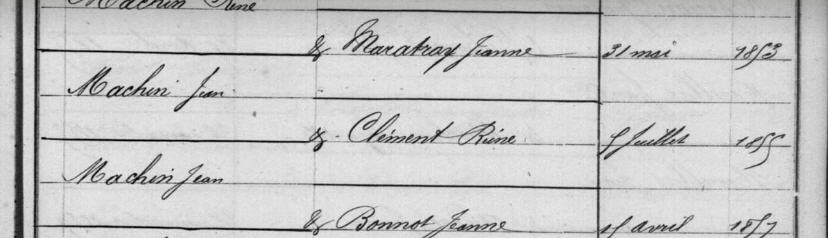 Machin Rène
& Maratray Jeanne 31 mai 1853
Machin Jean
& Clément Rène 5 Juillet 1855
Machin Jean
& Bonnot Jeanne 15 avril 1857